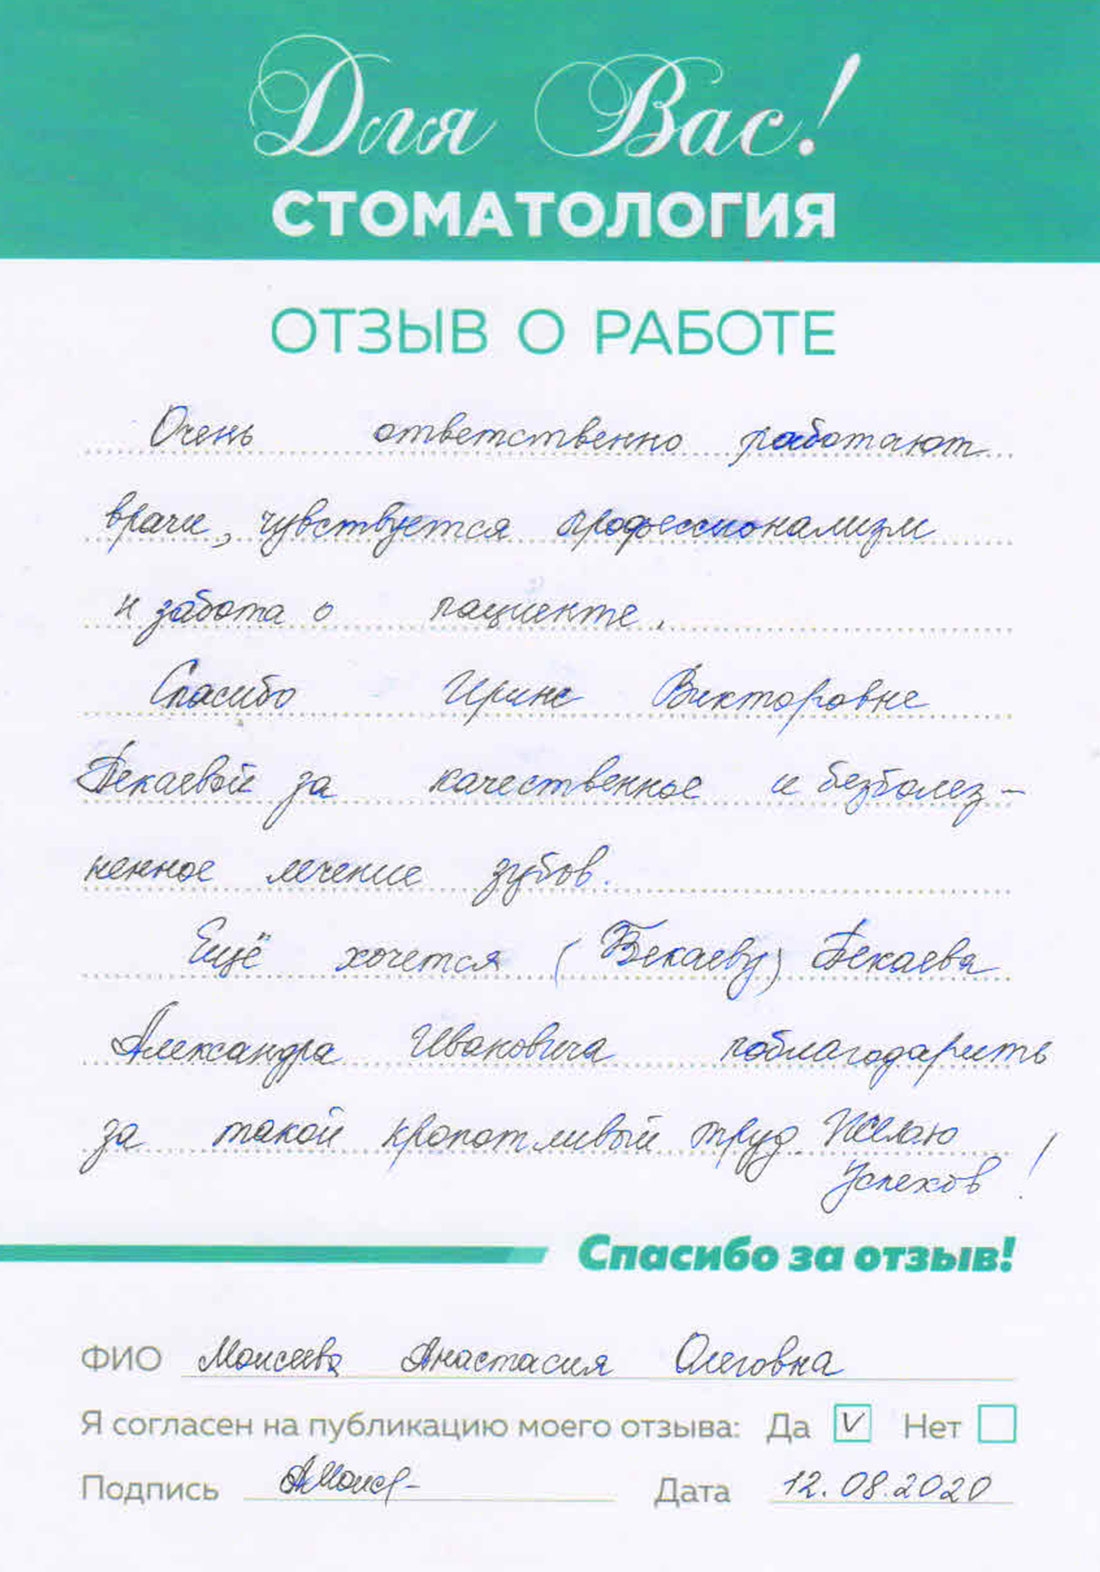 Для Вас!
СТОМАТОЛОГИЯ
ОТЗЫВ О РАБОТЕ
Очень ответственно работают
врачи, чувствуется профессионализм
и забота о пациенте.
Спасибо Ирине Викторовне
Бекаевой за качественное и безболез-
ненное лечение зубов.
Ещё хочется (Бекаеву) Бекаева
Александра Ивановича поблагодарить
за такой кропотливый труд. Желаю
Успехов!
Спасибо за отзыв!
ФИО Моисеева Анастасия Олеговна
Я согласен на публикацию моего отзыва: Да V Нет
Подпись АМоис Дата 12.08.2020